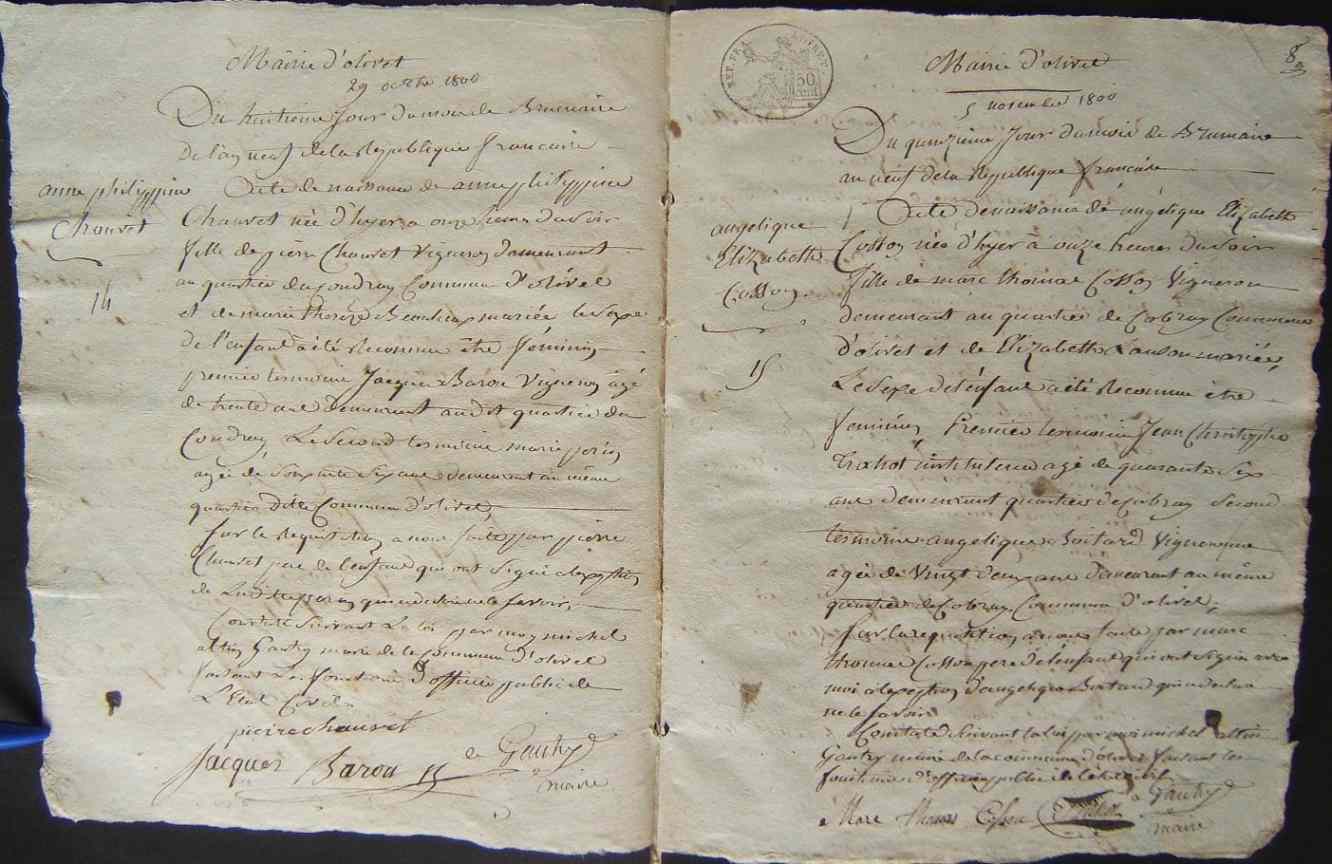 Mairie d'olivet
29 octbre 1800
Du huitieme Jour du mois de Brumaire
De l'an neuf de la Republique francaise
anne philippine
Chauvet
14
Acte de naissance de anne philippine
Chauvet née d'hyer a onze heures du soir
fille de pierre Chauvet Vigneron demeurant
au quartier du Coudray Commune d'olivet
et de marie therese Beauchamp mariée le Sexe
De l'enfant a été Reconnu être féminin
premier temoin Jacques Barou Vigneron âgé
de trente ans demeurant audit quartier du
Coudray Le Second temoin marie
agée de Soixante Six ans demeurant au même
quartier dite Commune d'olivet,
Sur la Requisition a nous faite par pierre
Chauvet pere de l'enfant qui ont Signé a l'exception
de Ladite qui a declaré ne le Savoir,
Constaté Suivant La loi par moy michel
altin Gautry maire de la Commune d'olivet
faisant Les fonctions D'officier public de
L'Etat Civil
pieire chauvet
Jacques Barou
Gautry
maire
8
REP. FRA.
50
cent
Mairie d'olivet
5 novembre 1800
Du quinzieme Jour du mois de Brumaire
an neuf de la Republique francaise
angelique
Elizabeth
Cosson
15
Acte de naissance de angélique Elizabeth
Cosson née d'hyer à onze heures du soir
fille de marc thomas Cosson Vigneron
demeurant au quartier de Cobray Commune
d'olivet et de Elizabeth mariée,
Le Sexe de l'enfant a été Reconnu etre
féminin Premier temoin Jean Christophe
instituteur agé de quarante Six
ans demeurant quartier de Cobray Second
temoin angelique Boitard Vigneronne
agée de Vingt deux ans demeurant au même
quartier de Cobray Commune d'olivet,
Sur la requisition a nous faite par marc
thomas Cosson pere de l'enfant qui ont Signé avec
moi a l'exception d'angelique Boitard qui a declaré
ne le Savoir
Constaté Suivant la Loi par moi michel altin
Gautry maire de la commune d'olivet faisant les
fonctions d'officier public de l'etat civil
Marc thomas Cosson
Gautry
maire